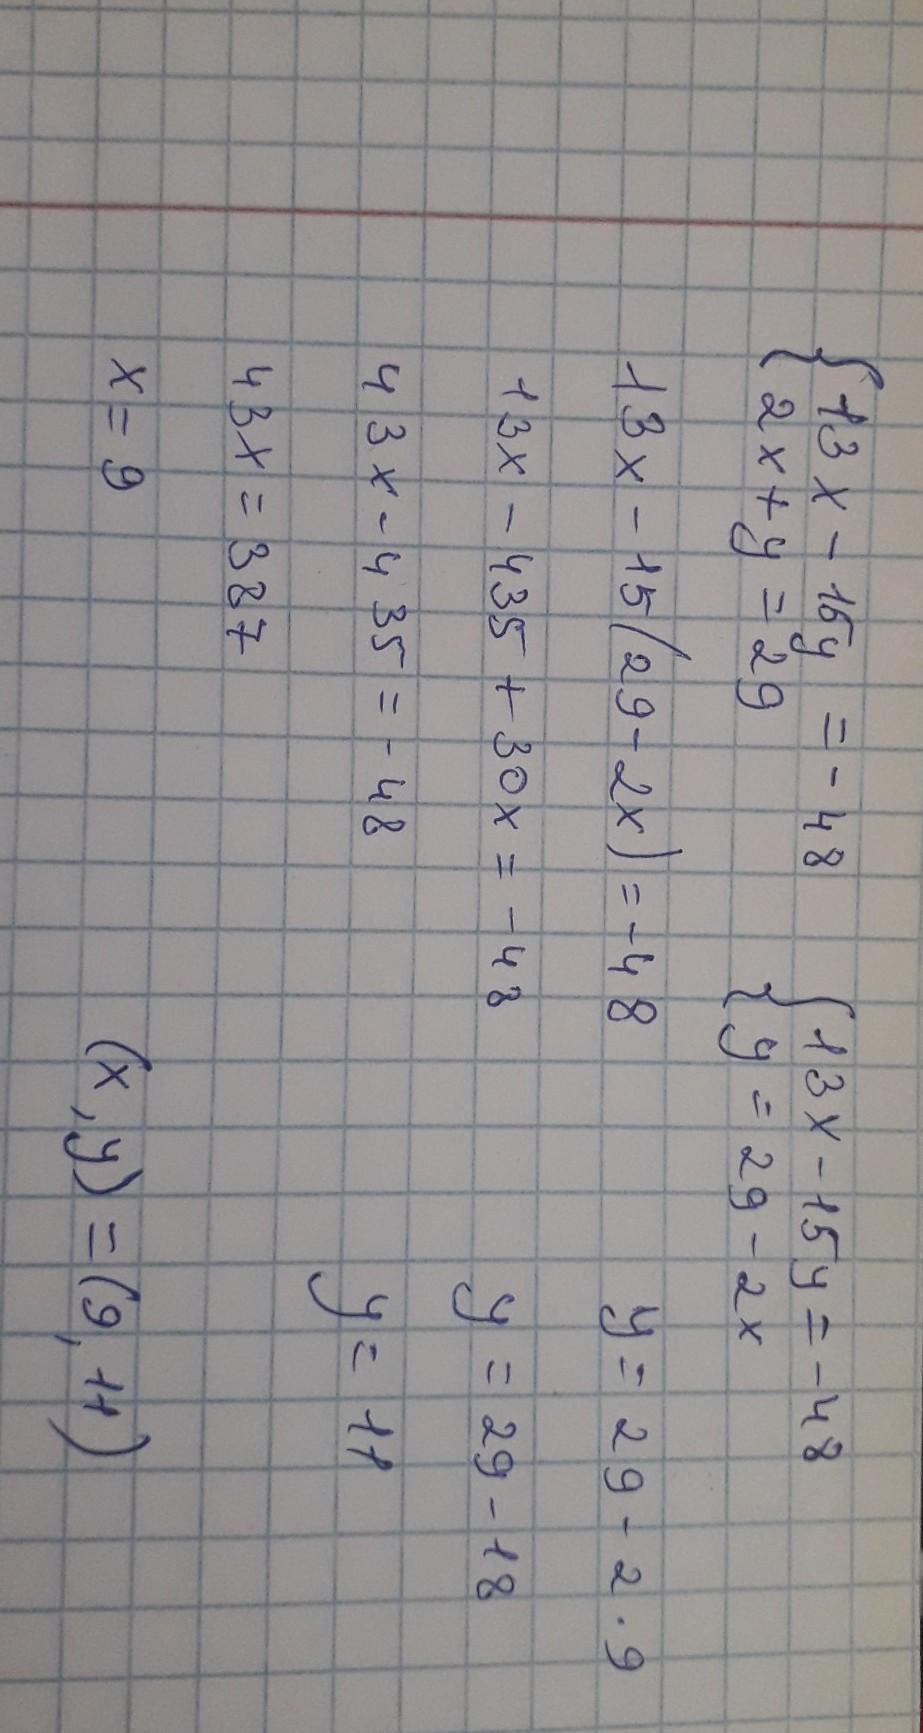 {13x - 15y = -48 {13x - 15y = -48
{2x + y = 29 {y = 29 - 2x
13x - 15(29 - 2x) = -48 y = 29 - 2 · 9
13x - 435 + 30x = -48 y = 29 - 18
43x - 435 = -48 y = 11
43x = 387
x = 9 (x, y) = (9, 11)